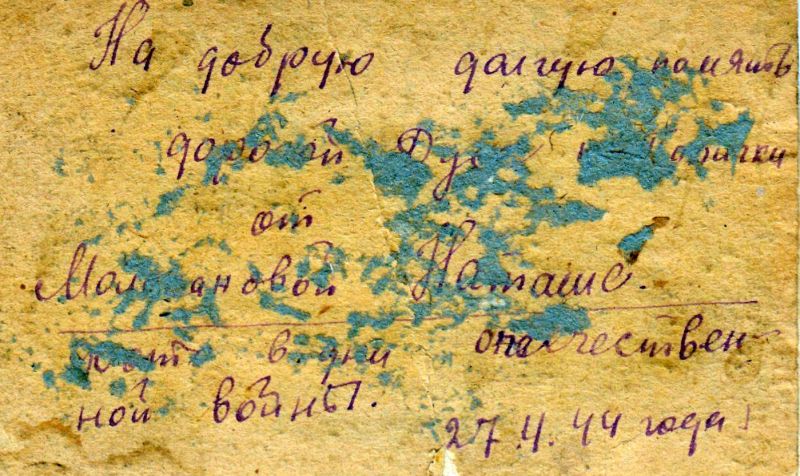 На добрую долгую память
дорогой
от
Наташе.
в дни отечествен-
ной войны.
27.4.44 года